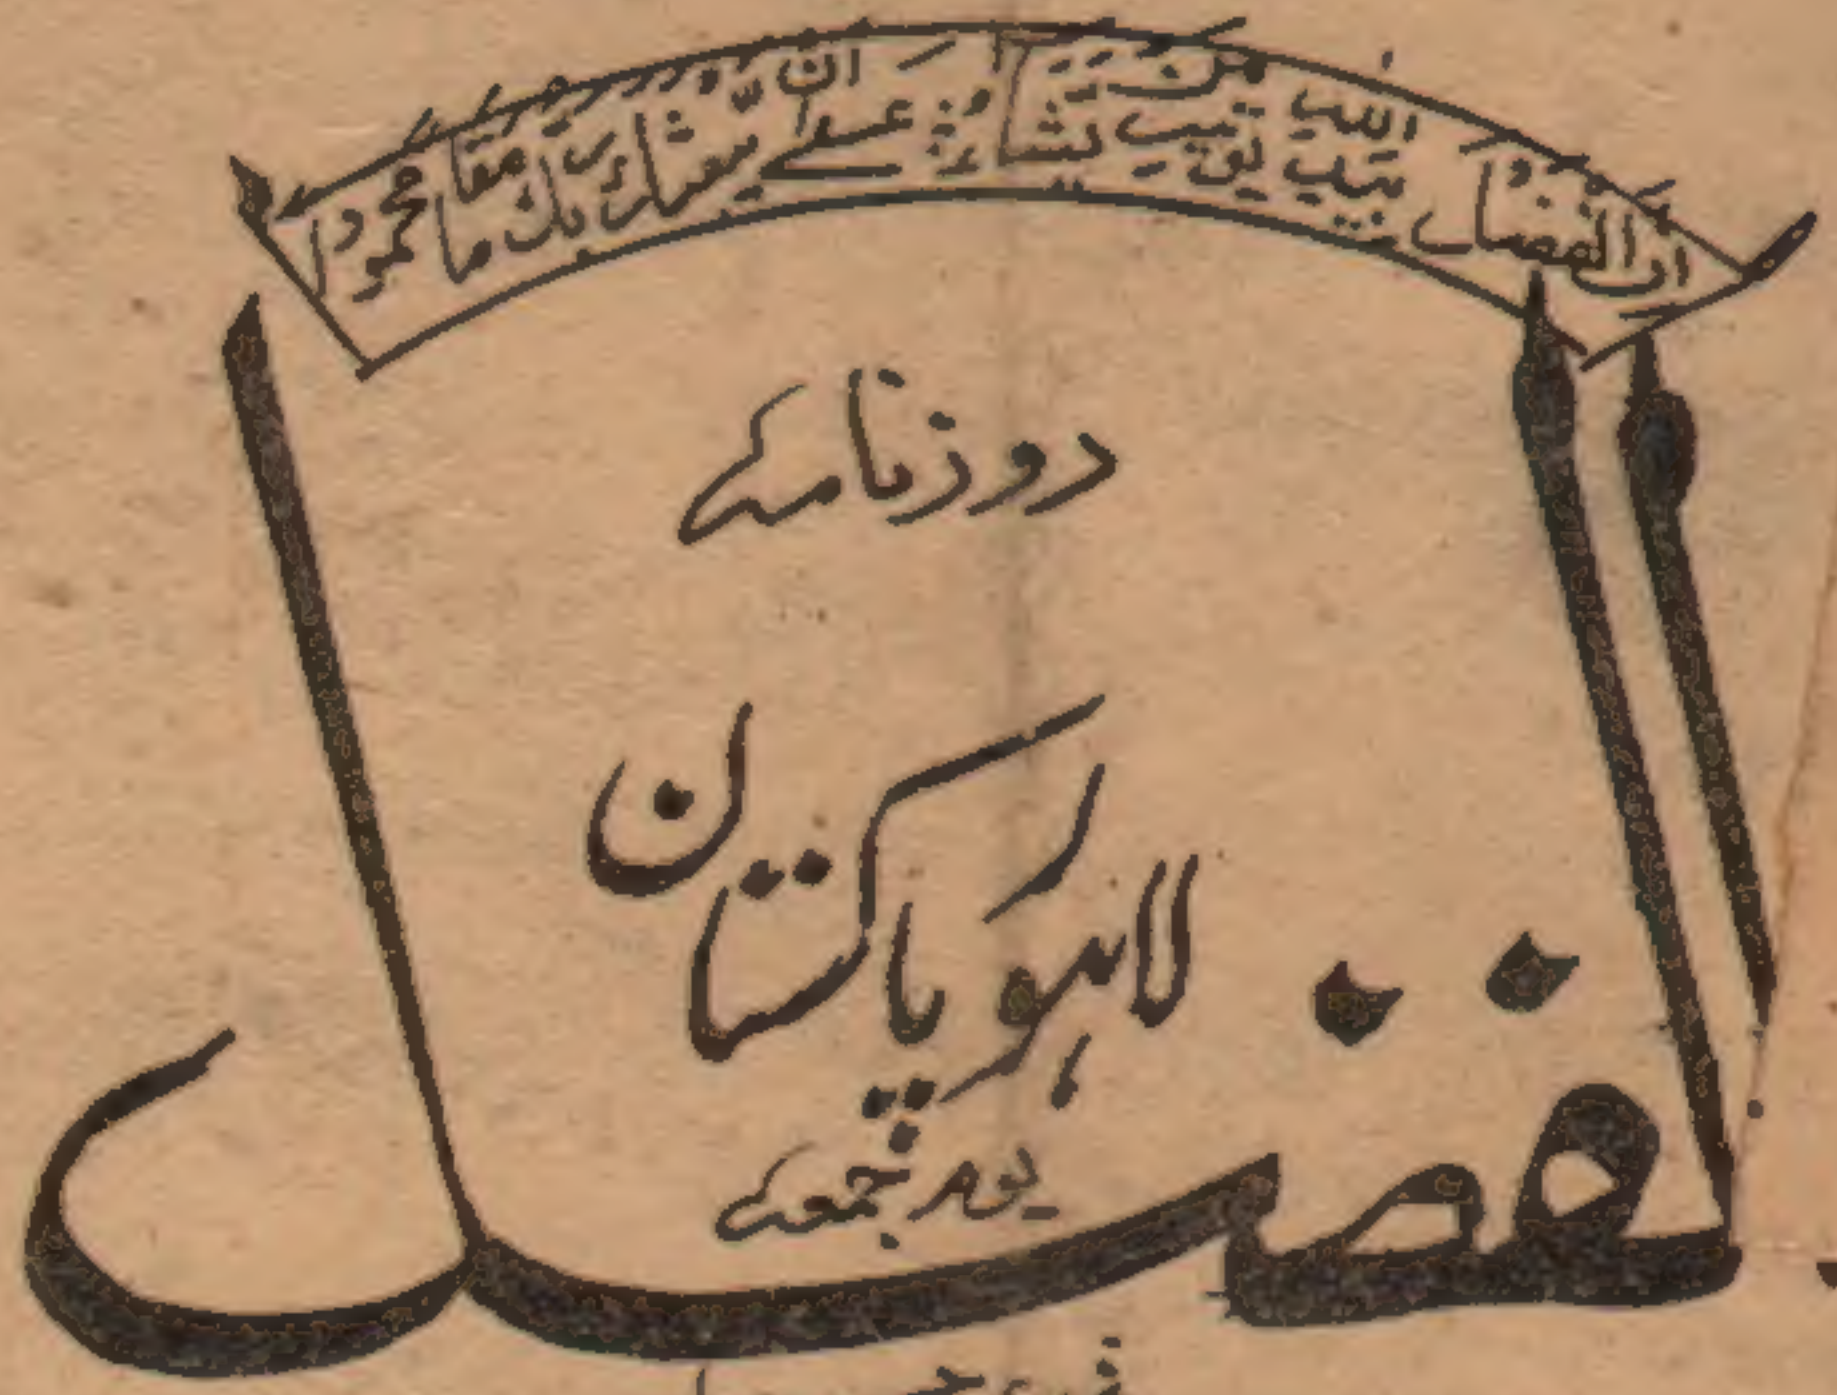 ان الفضل بید اللہ یؤتیہ من یشاء عسیٰ ان یبعثک ربک مقاما محمودا
روزنامہ
الفضل
لاہور پاکستان
یوم جمعہ